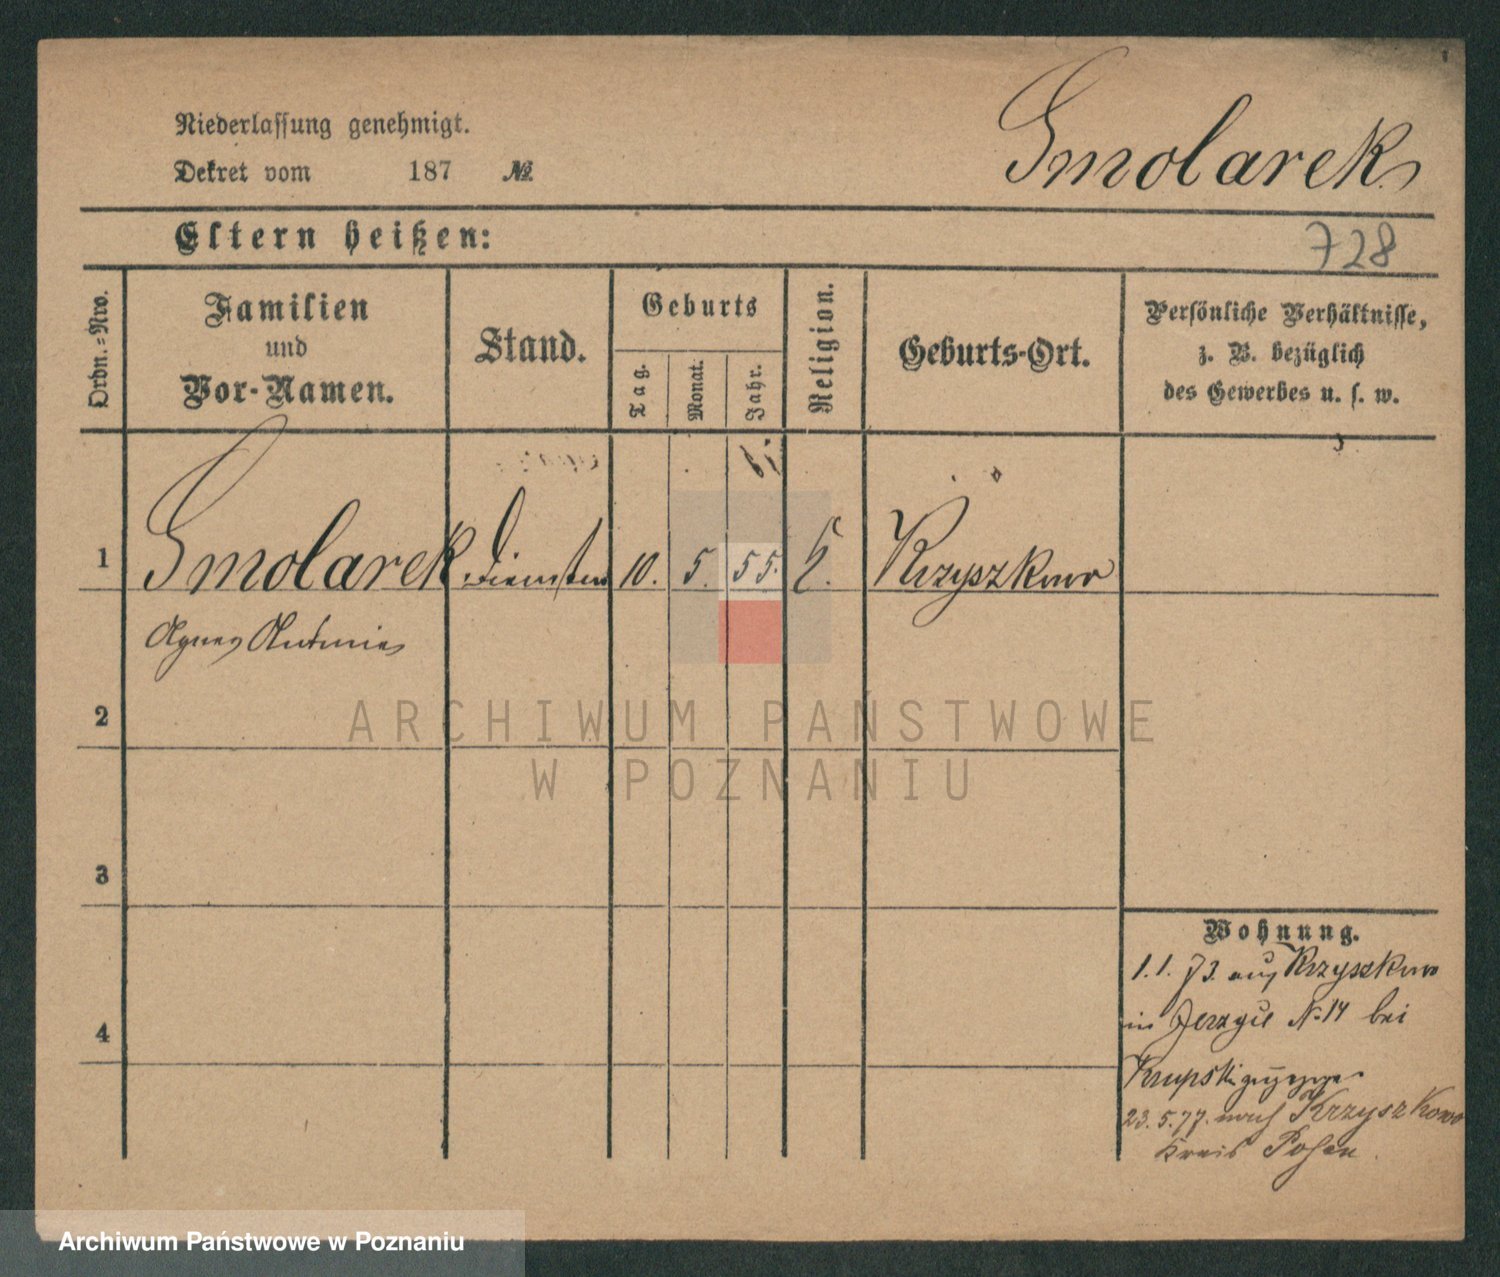 Niederlassung genehmigt.
Dekret vom 187 №
Smolarek
Eltern heißen:
728
Ordn.-Nro.
Familien
und
Vor-Namen.
Stand.
Geburts
Tag.
Monat.
Jahr.
Religion.
Geburts-Ort.
Persönliche Verhältnisse,
z. B. bezüglich
des Gewerbes u. s. w.
1
Smolarek 10. 5. 55. Krzyszkowo
Agnes
2
ARCHIWUM PAŃSTWOWE
W POZNANIU
3
Wohnung.
1.1. Krzyszkowo
in N. 14 bei
4
Krupski
23.5.77. nach Krzyszkowo
Kreis Posen.
Archiwum Państwowe w Poznaniu